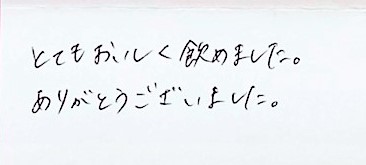 とてもおいしく飲めました。
ありがとうございました。